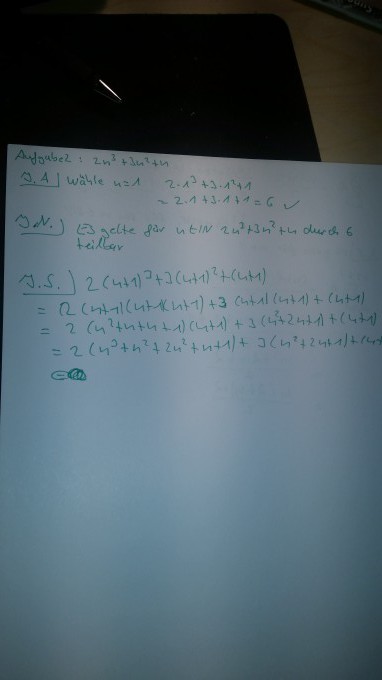 Aufgabe 2 : 2n³+3n²+n
I.A.] Wähle n=1 2·1³+3·1²+1
= 2·1+3·1+1 = 6 ✓
I.V.] Es gelte für n∈ℕ 2n³+3n²+n durch 6
teilbar
I.S.] 2(n+1)³+3(n+1)²+(n+1)
= 2(n+1)(n+1)(n+1)+3(n+1)(n+1)+(n+1)
= 2(n²+n+n+1)(n+1)+3(n²+2n+1)+(n+1)
= 2(n³+n²+2n²+n+1)+3(n²+2n+1)+(n+
=